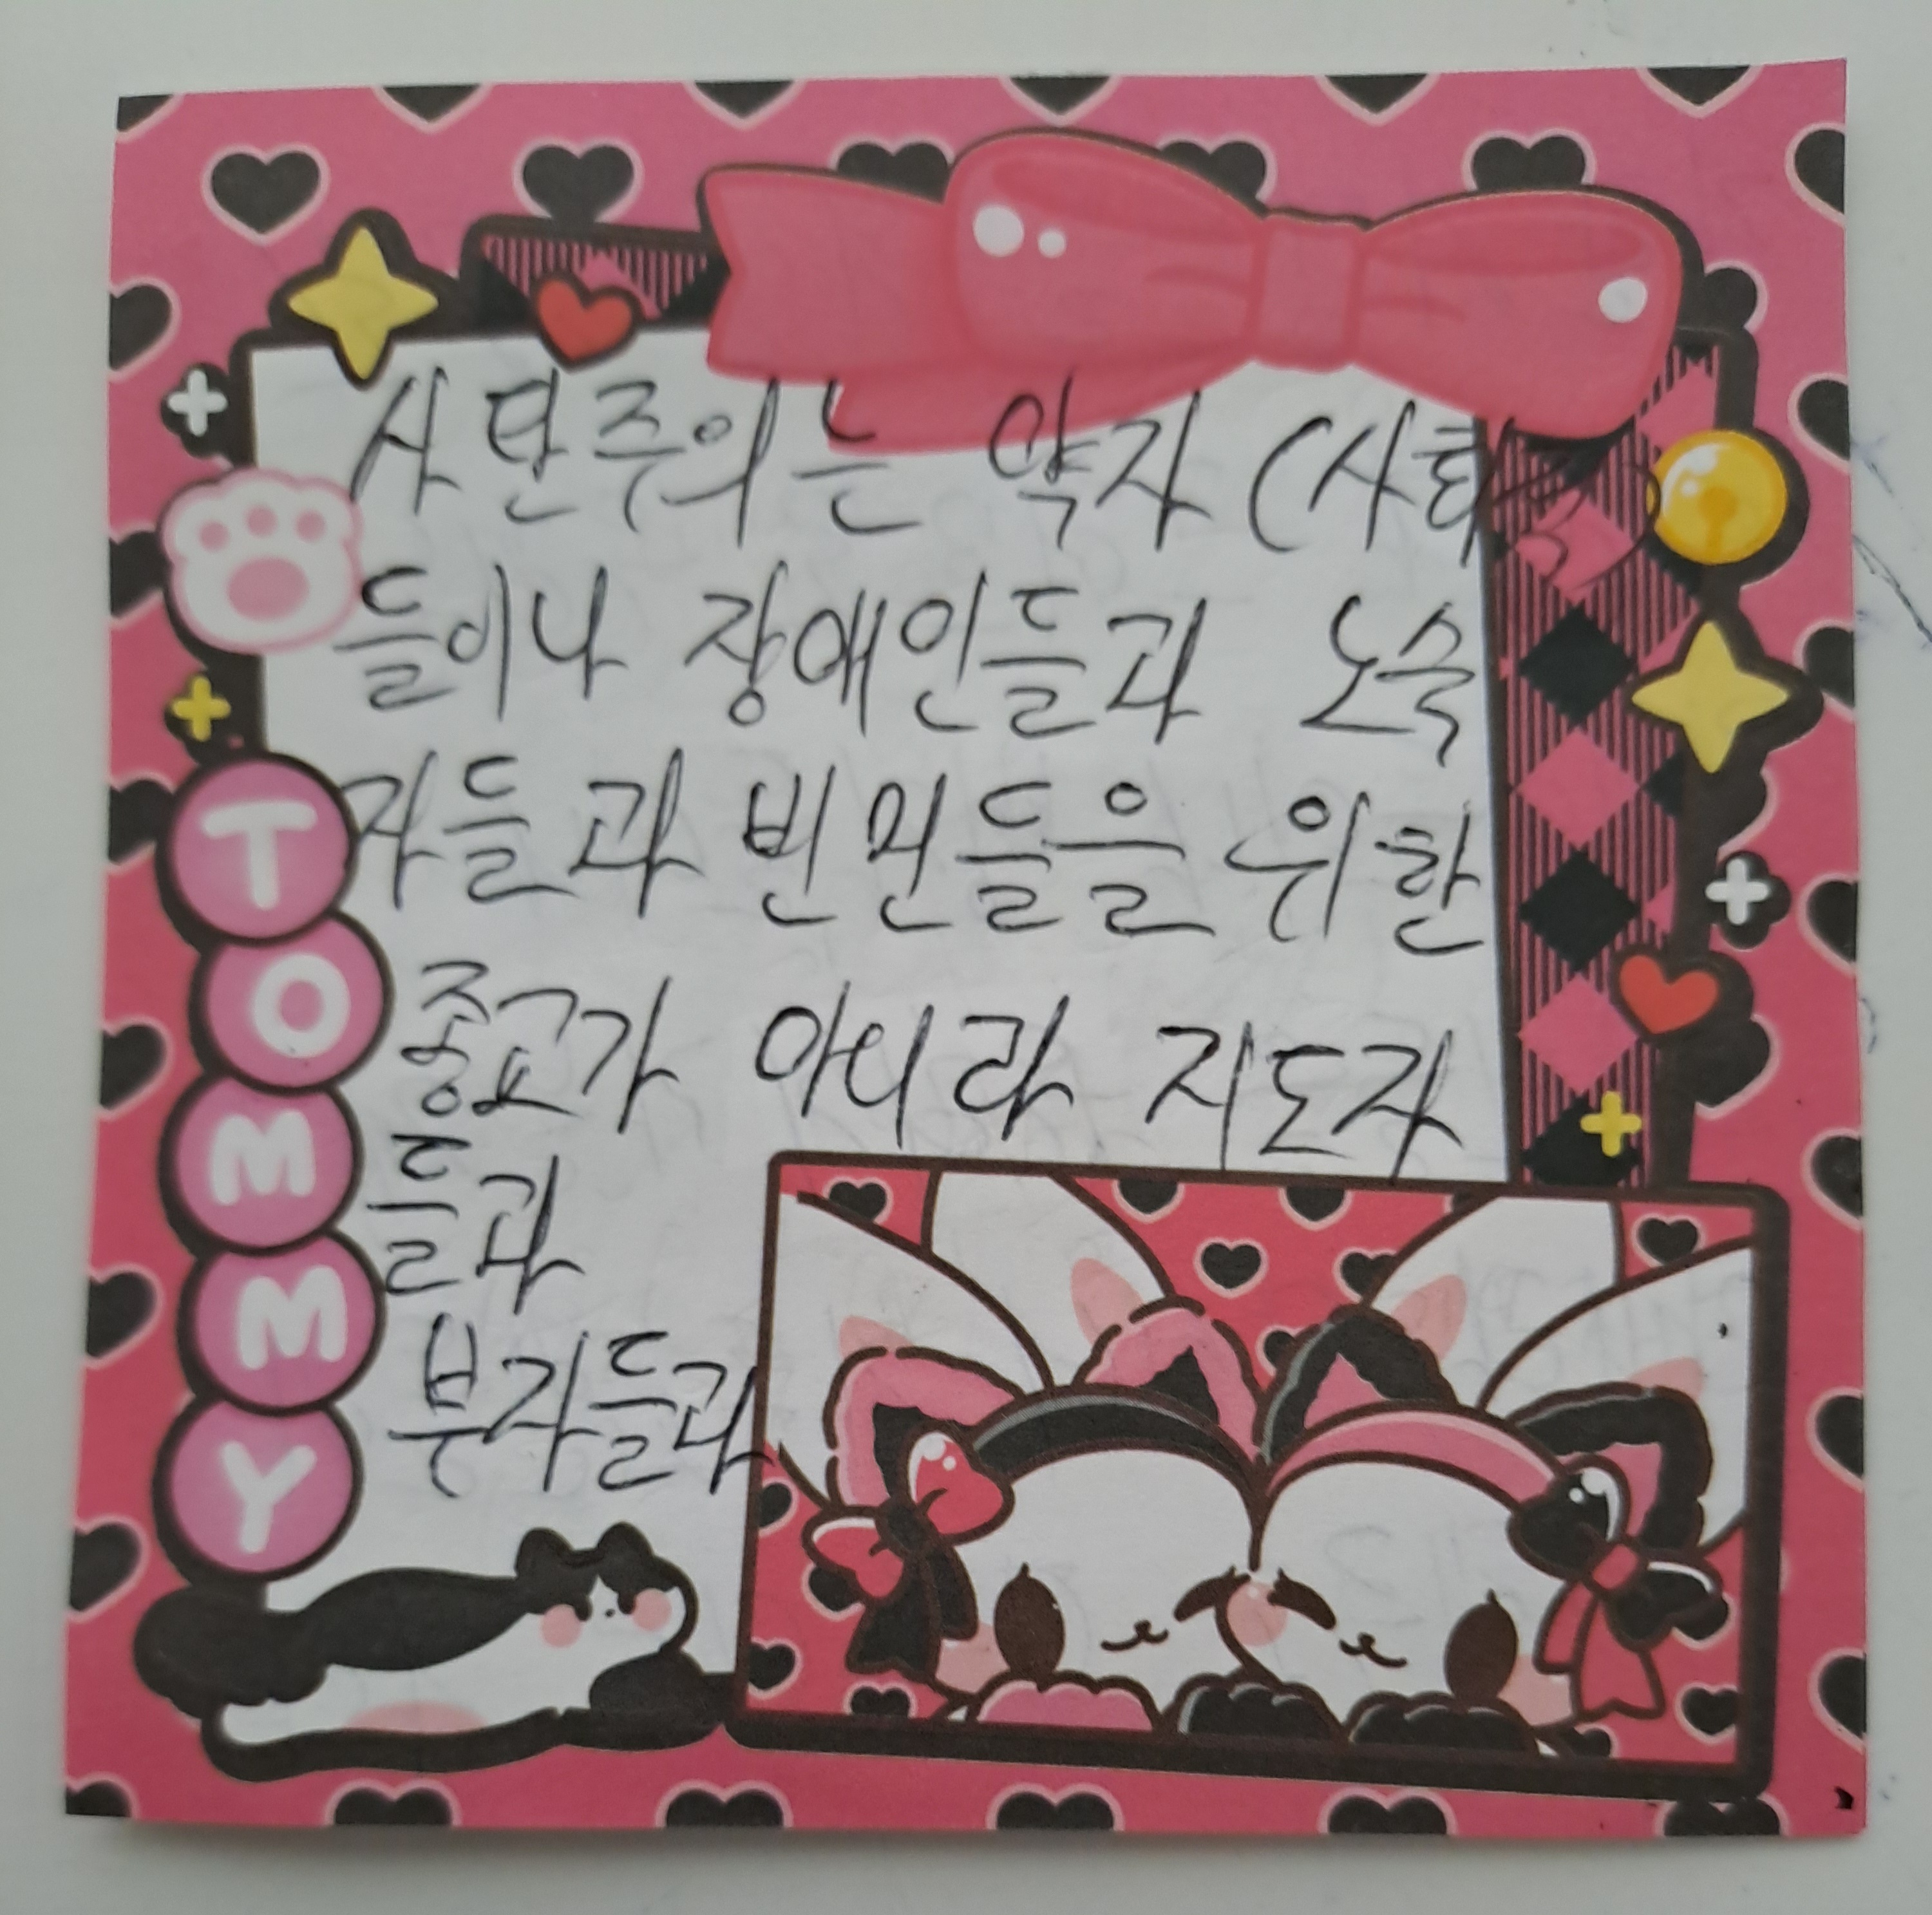 사탄주의는 약자 (사회적)
들이나 장애인들과 노숙
자들과 빈민들을 위한
종교가 아니라 지도자
들과
부자들과
TOMMY